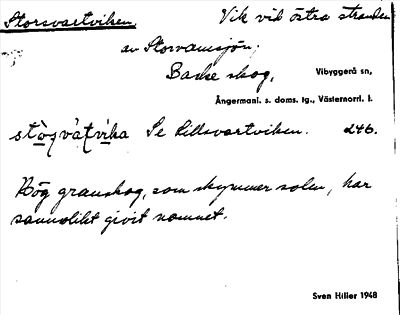 Storsvartviken, Vik vid östra stranden
av Storvamsjön,
skog, Vibyggerå sn,
Ångermanl. s. doms. tg., Västernorrl. l.
Se Lillsvartviken. 246.
Hög granskog, som skymmer solen, har
sannolikt givit namnet.
Sven Hiller 1948